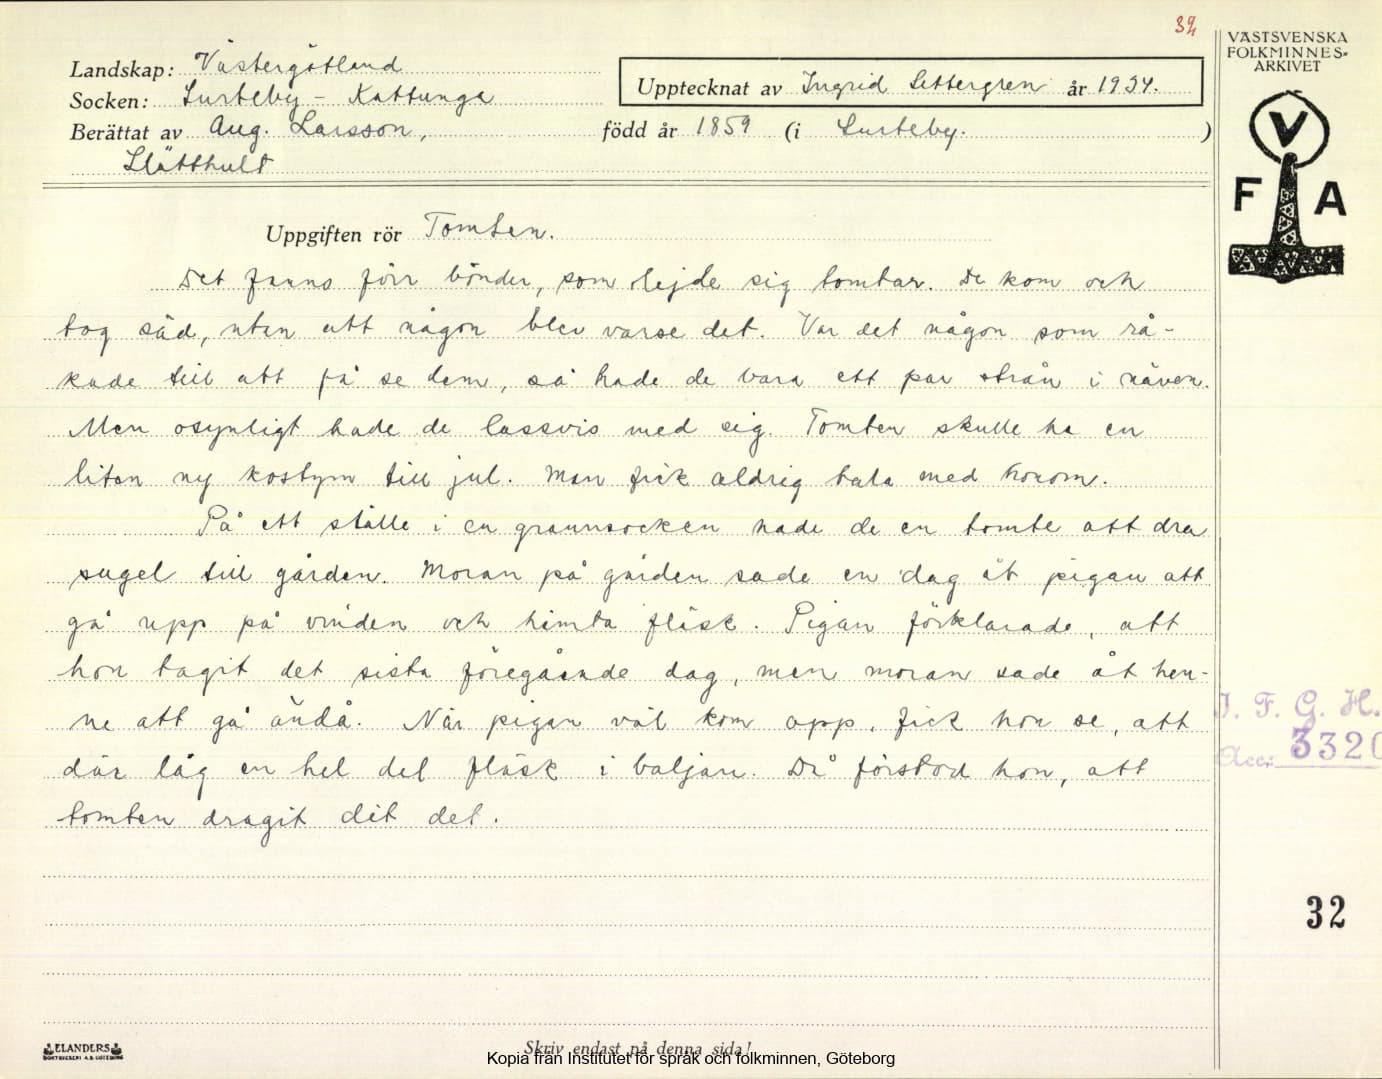 32
VÄSTSVENSKA
FOLKMINNES-
ARKIVET
Landskap: Västergötland
Upptecknat av Ingrid Settergren år 1934.
Socken: Surteby - Kattunga
Berättat av Aug. Larsson, född år 1859 (i Surteby. )
Slätthult
V
F A
Uppgiften rör Tomten.
Det fanns förr bönder, som lejde sig tomtar. De kom och
tog säd, utan att någon blev varse det. Var det någon som rå-
kade till att få se dem, så hade de bara ett par strån i näven.
Men osynligt hade de lassvis med sig. Tomten skulle ha en
liten ny kostym till jul. Man fick aldrig tala med honom.
På ett ställe i en grannsocken hade de en tomte att dra
sugel till gården. Moran på gården sade en dag åt pigan att
gå upp på vinden och hämta fläsk. Pigan förklarade, att
hon tagit det sista föregående dag, men moran sade åt hen-
ne att gå ändå. När pigan väl kom opp, fick hon se, att
där låg en hel del fläsk i baljan. Då förstod hon, att
tomten dragit dit det.
I. F. G. H.
Acc: 3320
32
ELANDERS
BOKTRYCKERI A.B. GÖTEBORG
Skriv endast på denna sida!
Kopia från Institutet för språk och folkminnen, Göteborg